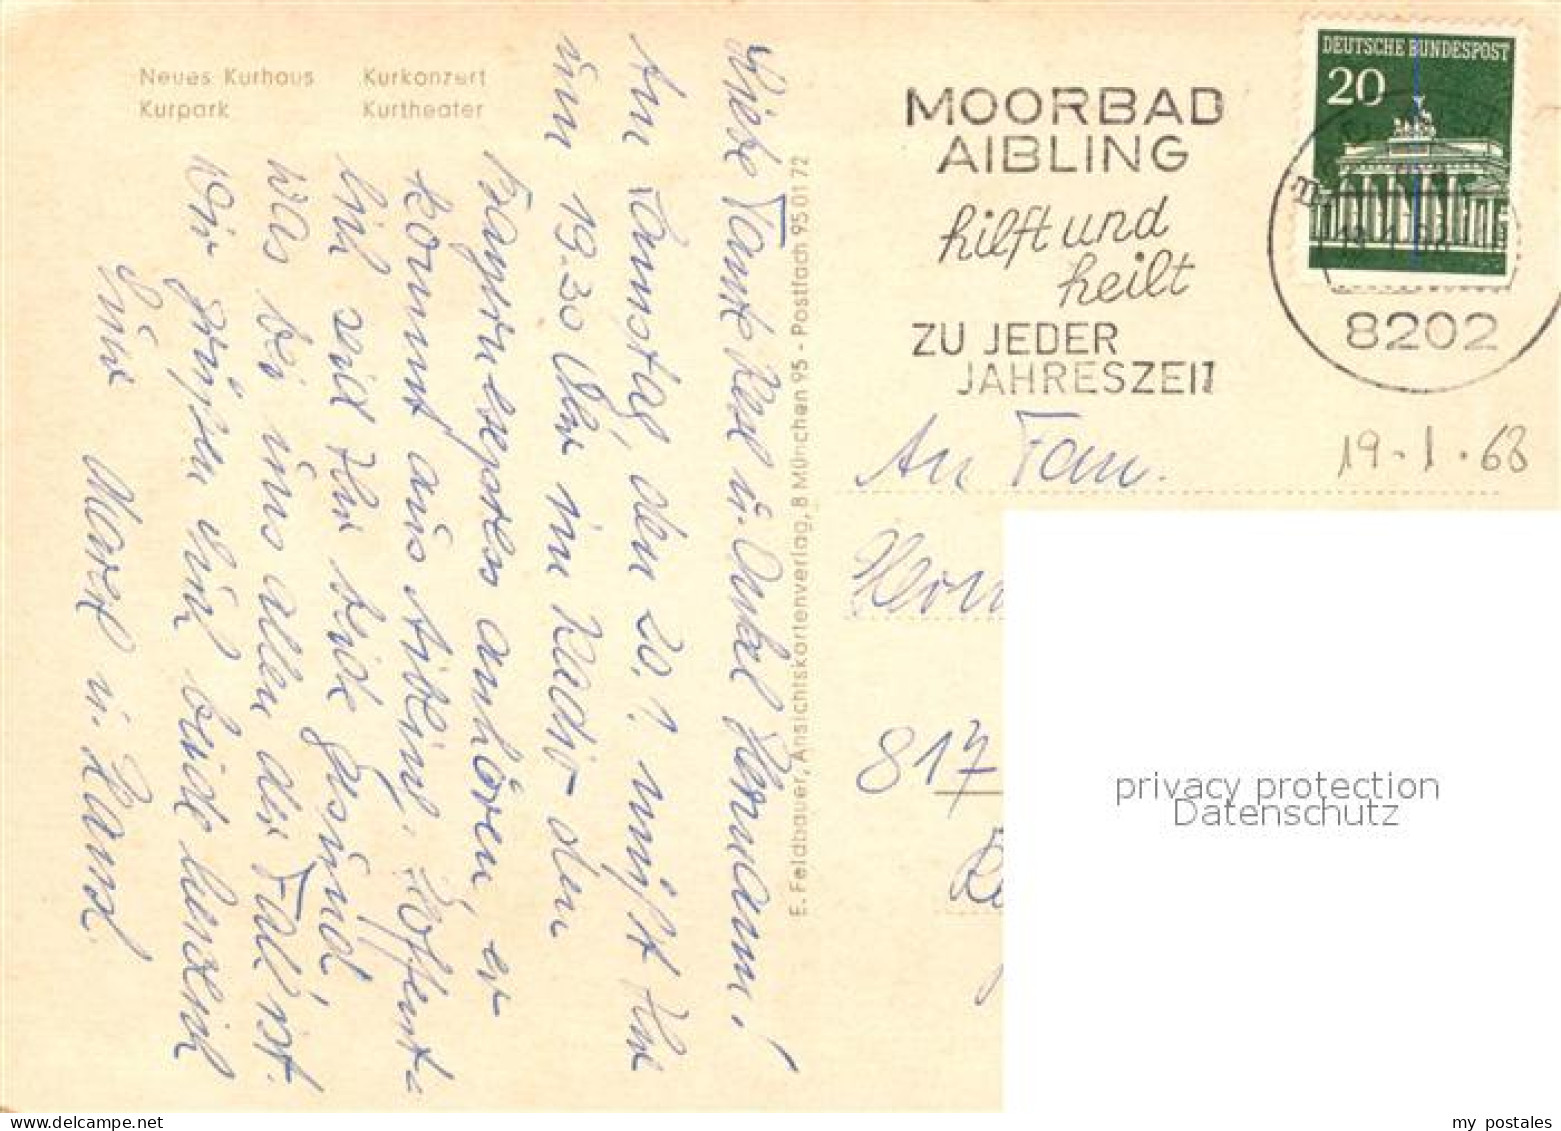 Neues Kurhaus Kurkonzert
Kurpark Kurtheater
Liebe Tante Resl u. Onkel Hermann!
Am Samstag, den 20.1. müßt Ihr
um 19.30 Uhr im Radio den
Bayernexpress anhören, er
kommt aus Aibling. Hoffent-
lich seid Ihr beide gesund,
was bei uns allen der Fall ist.
Wir grüßen Euch beide herzlich
Eure u. Hans.
E. Feldbauer, Ansichtskartenverlag, 8 München 95 - Postfach 95 01 72
MOORBAD
AIBLING
hilft und
heilt
ZU JEDER
JAHRESZEIT
DEUTSCHE BUNDESPOST
20
8202
19.1.68
An Fam.
817
privacy protection
Datenschutz
my postales